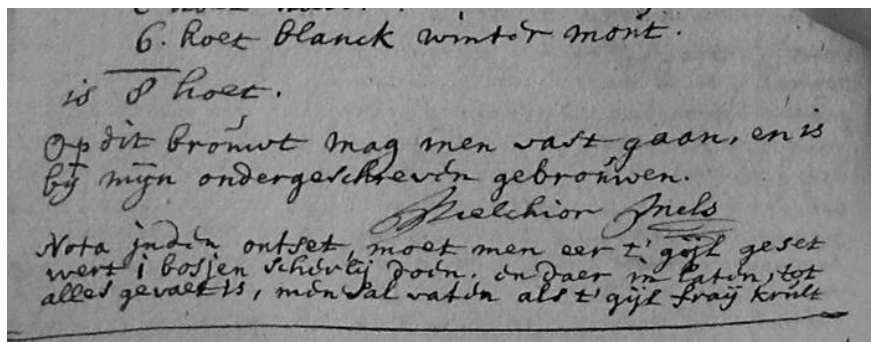 6. hoet blanck winter mout.
is 8 hoet.
Op dit brouwt mag men vast gaan, en is
bij mijn ondergeschreven gebrouwen.
Melchior Jnels
Nota inden ontset, moet men eer t' gijl geset
wert i bosjen scherlij doen. en daer in laten, tot
alles gevaet is, men sal vaten als t' gijl fraij krult